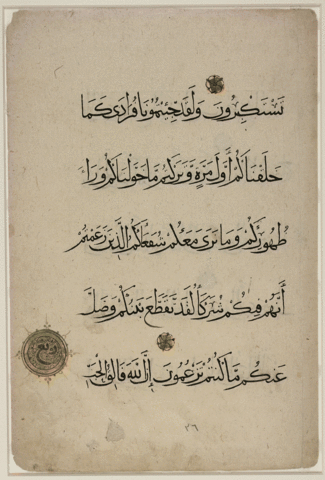 تَسْتَكْبِرُونَ وَلَقَدْ جِئْتُمُونَا فُرَادَى كَمَا
خَلَقْنَاكُمْ أَوَّلَ مَرَّةٍ وَتَرَكْتُمْ مَا خَوَّلْنَاكُمْ وَرَاءَ
ظُهُورِكُمْ وَمَا نَرَى مَعَكُمْ شُفَعَاءَكُمُ الَّذِينَ زَعَمْتُمْ
أَنَّهُمْ فِيكُمْ شُرَكَاءُ لَقَدْ تَقَطَّعَ بَيْنَكُمْ وَضَلَّ
عَنْكُمْ مَا كُنْتُمْ تَزْعُمُونَ إِنَّ اللَّهَ فَالِقُ الْحَبِّ